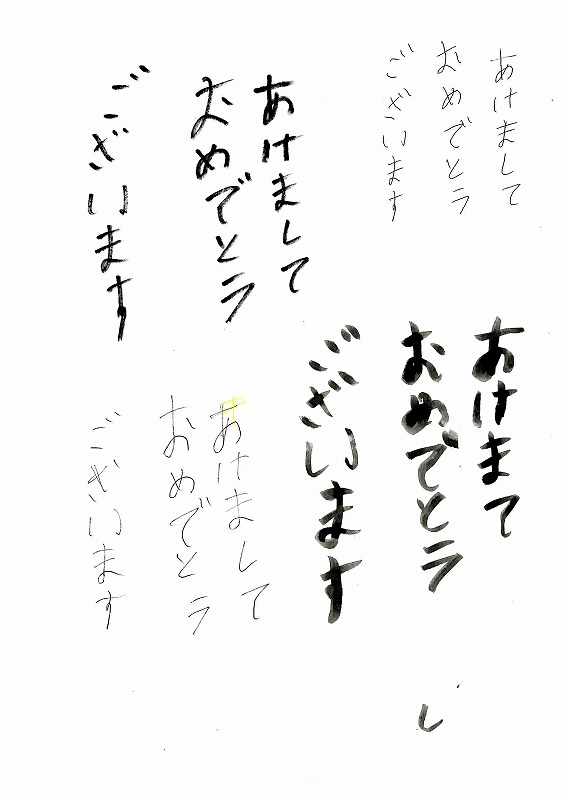 あけまして
おめでとう
ございます
あけまして
おめでとう
ございます
あけまて
おめでとう
ございます
あけまして
おめでとう
ございます
し